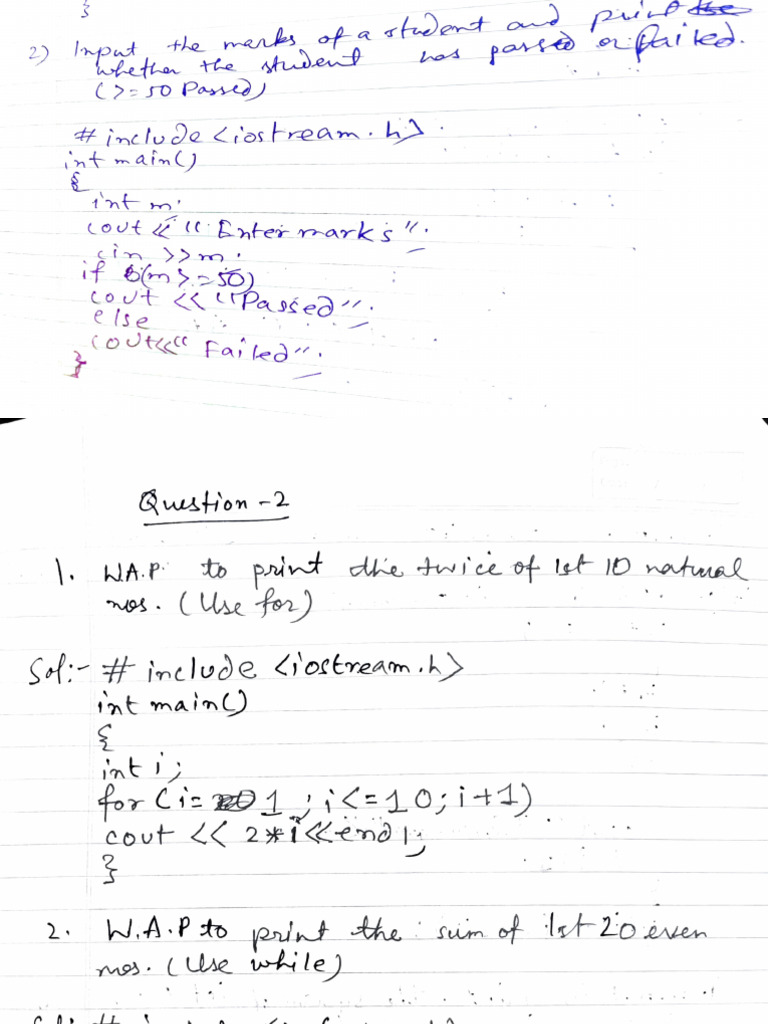 }
2) Input the marks of a student and print
whether the student has passed or failed.
(>=50 Passed)
# include <iostream.h>
int main()
{
int m;
cout << "Enter marks";
cin >>m;
if (m>=50)
cout << "Passed";
else
cout<<" Failed";
}
Question -2
1. W.A.P. to print the twice of 1st 10 natural
nos. (Use for)
Sol:- # include <iostream.h>
int main()
{
int i;
for (i= 1 ; i<=10; i+1)
cout << 2*i<<endl;
}
2. W.A.P to print the sum of 1st 20 even
nos. (Use while)